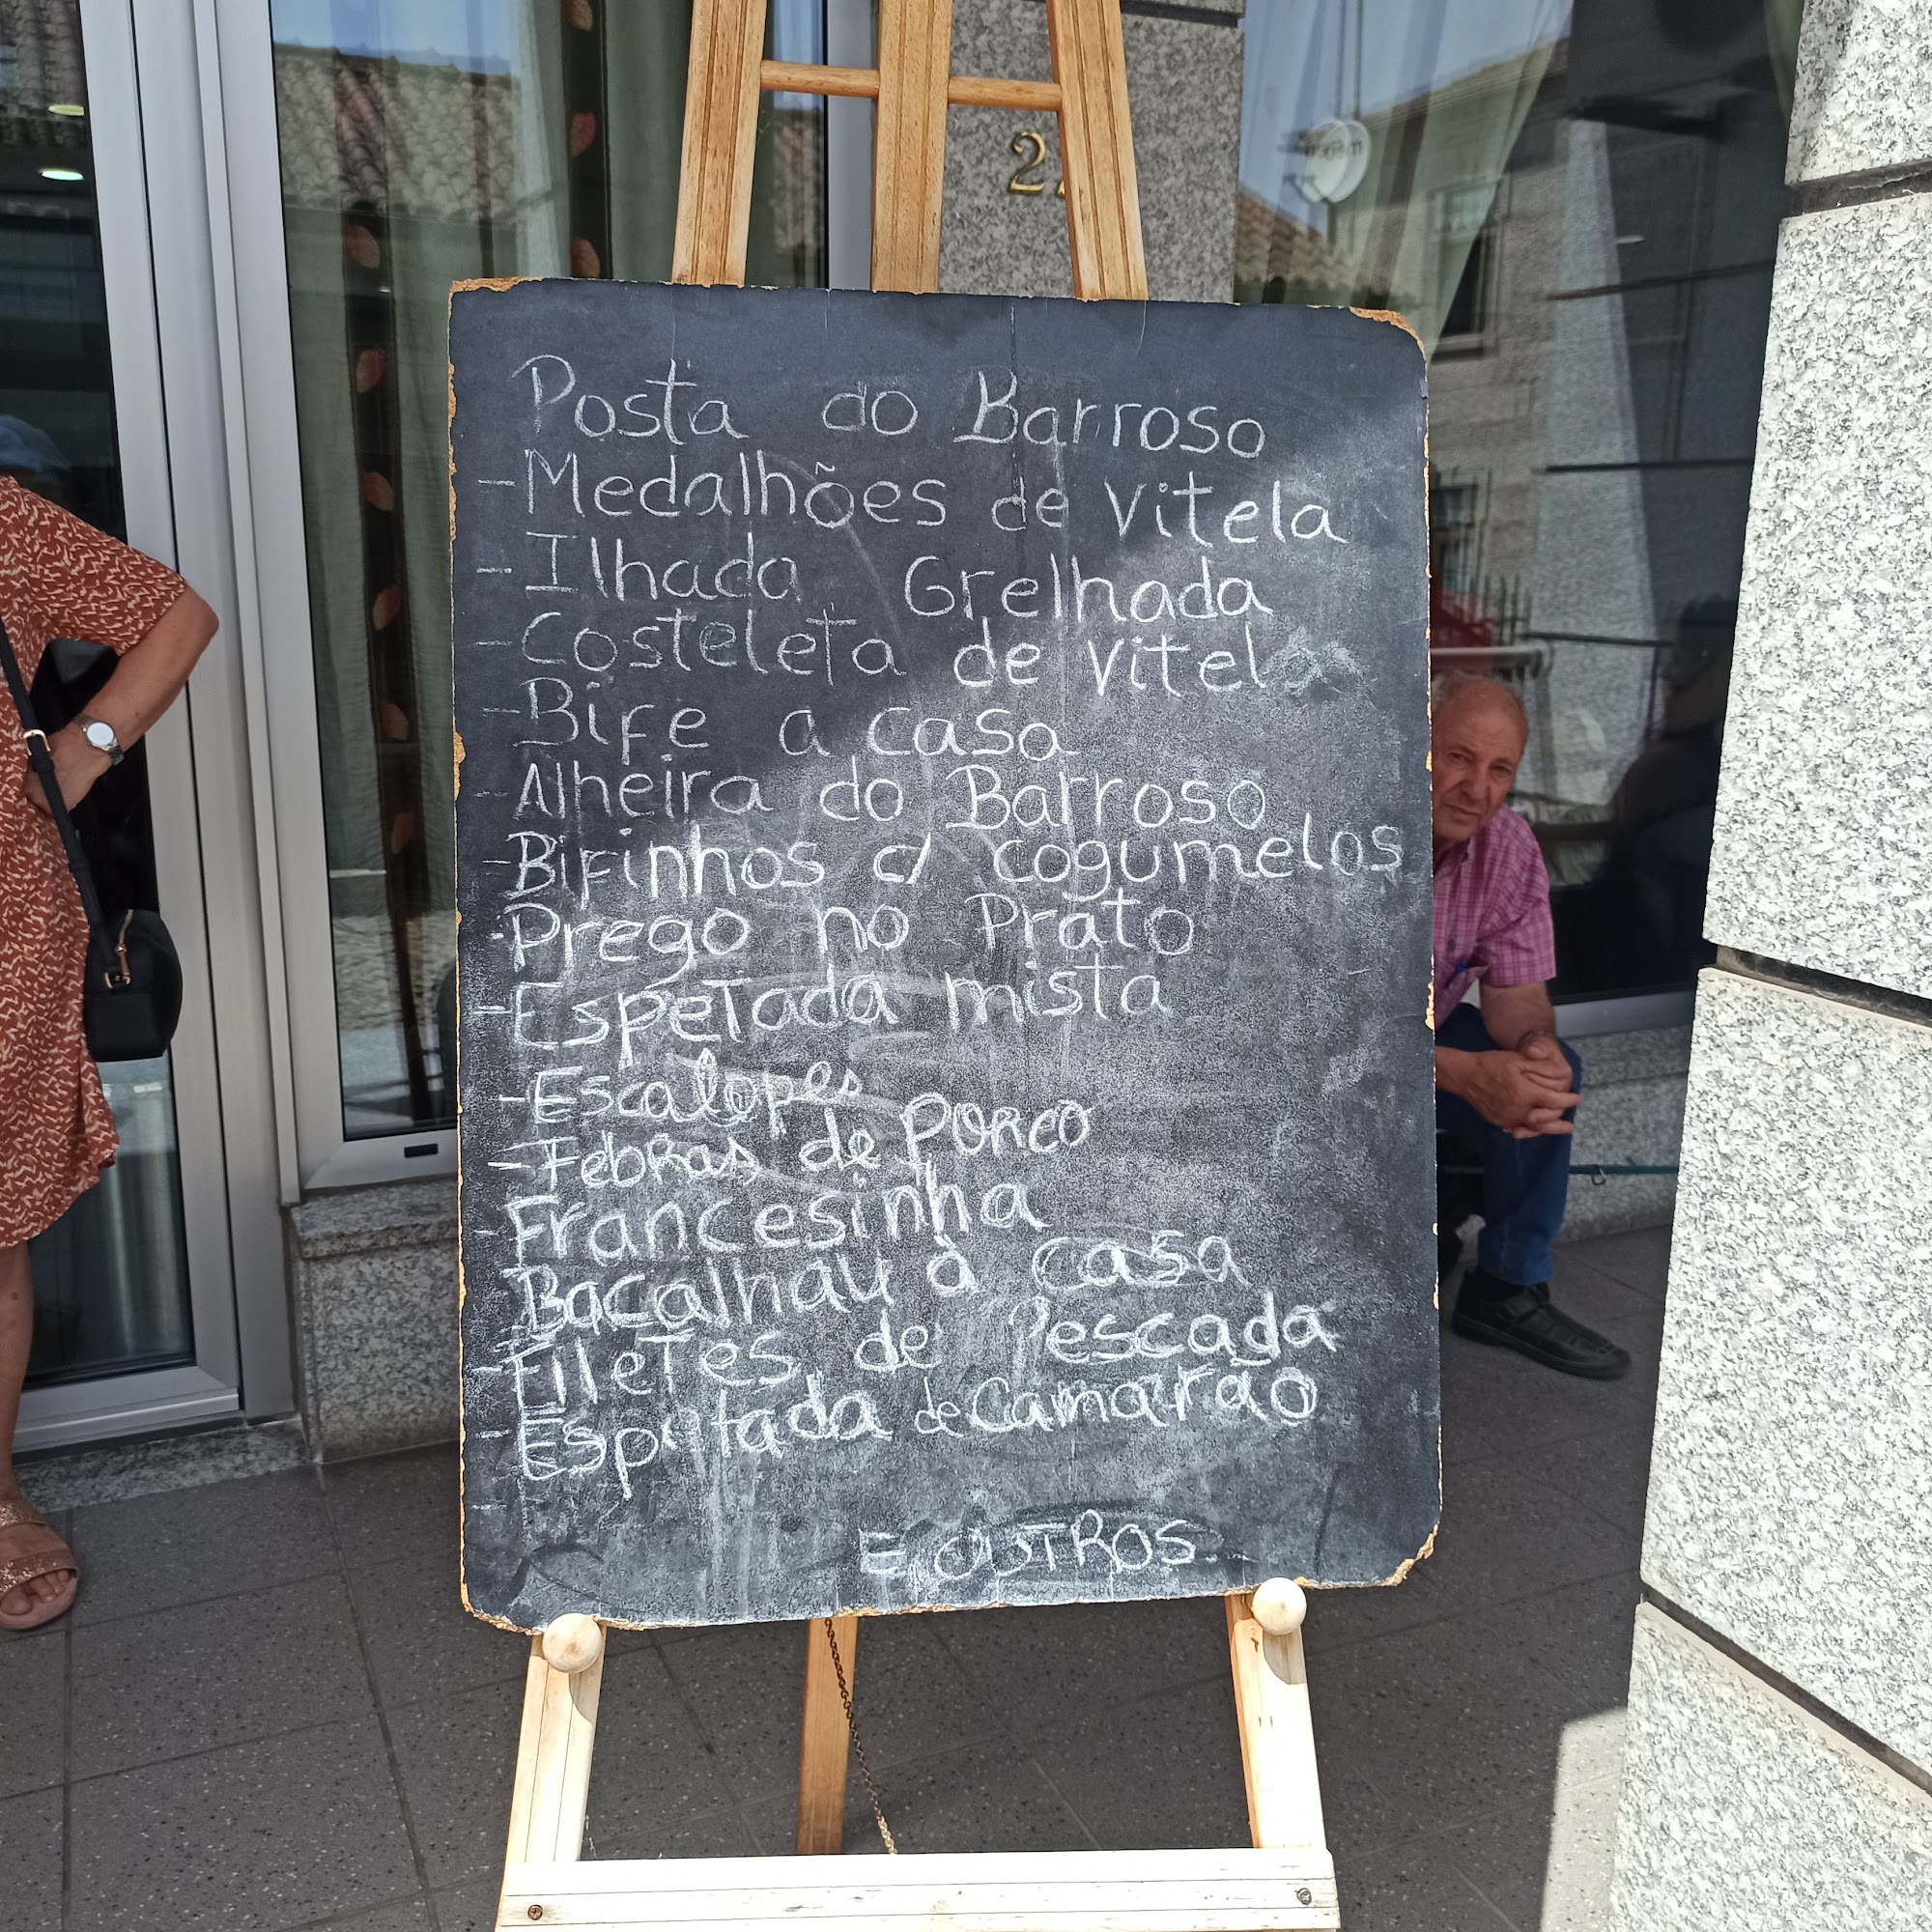 22
Posta do Barroso
- Medalhões de vitela
- Ilhada Grelhada
- Costeleta de vitela
- Bife a casa
- Alheira do Barroso
- Bifinhos c/ cogumelos
- Prego no Prato
- Espetada mista
- Escalopes
- Febras de Porco
- Francesinha
- Bacalhau à casa
- Filetes de Pescada
- Espetada de Camarão
-
E OUTROS.